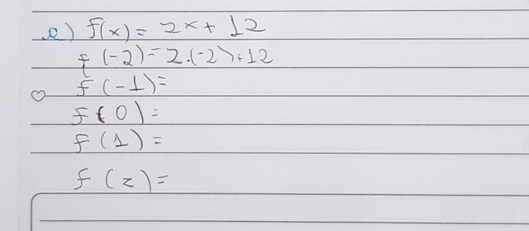 e) f(x) = 2x + 12
f(-2) = 2.(-2)+12
f(-1) =
f(0) =
f(1) =
f(2) =